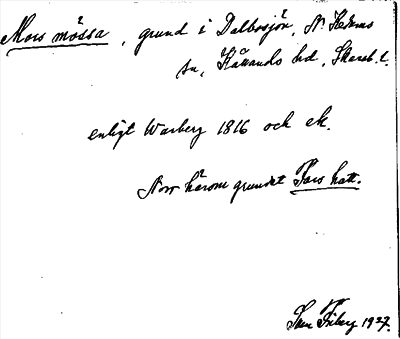 Mors mössa, grund i Dalbosjön, N. Kedums
sn, Kållands hd, Skarab. l.
enligt Warberg 1816 och ek.
Norr härom grundet Fars hatt.
Sven Friberg 1927.